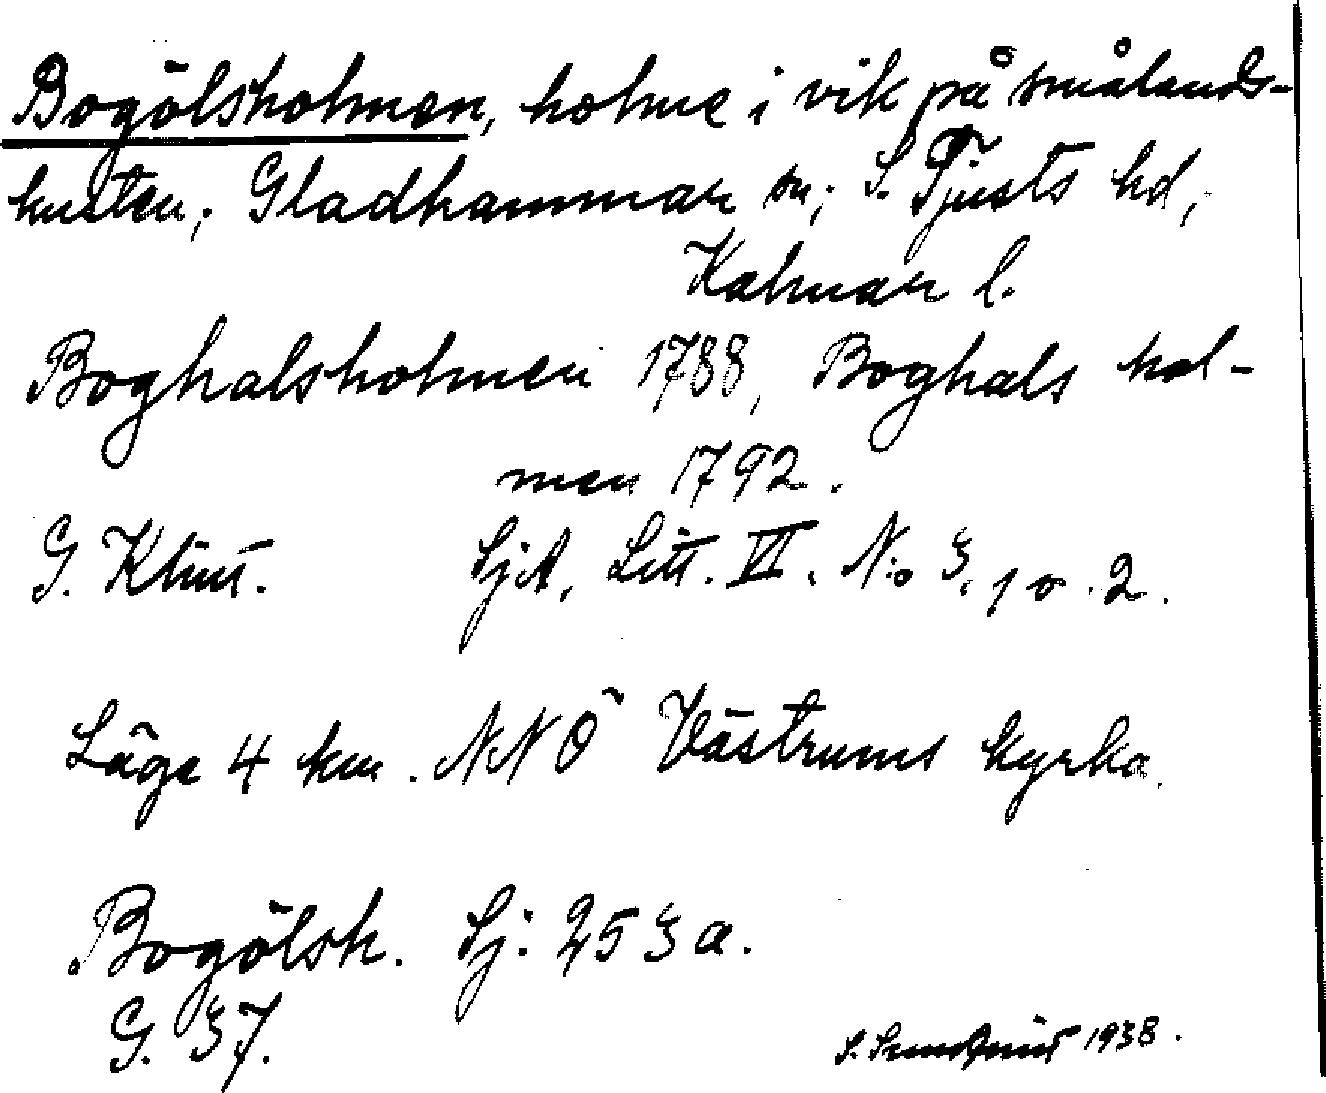 Bogölsholmen, holme i vik på smålands-
kusten, Gladhammar sn; S. Tjusts hd,
Kalmar l.
Boghalsholmen 1788, Boghals hol-
men 1792.
G. Klint. SjA, Litt. VI. N:o 3, 1 o. 2.
Läge 4 km. NNÖ Västrums kyrka.
Bogölsh. Sj. 253 a.
G. 37.
S. Sundqvist 1938.